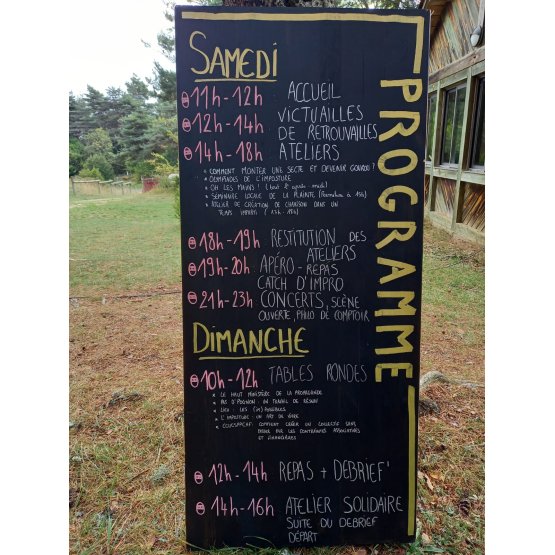 PROGRAMME
SAMEDI
11h-12h ACCUEIL
12h-14h VICTUAILLES
DE RETROUVAILLES
14h-18h ATELIERS
* COMMENT MONTER UNE SECTE ET DEVENIR GOUROU ?
* OLYMPIADES DE L'IMPOSTURE
* OH LES MAINS !
* SÉMINAIRE LOCALE DE LA PLAINTE (Formation à 15h)
* ATELIER DE CRÉATION DE CHANSON DANS UN
TEMPS IMPARTI
18h-19h RESTITUTION DES
ATELIERS
19h-20h APÉRO-REPAS
CATCH D'IMPRO
21h-23h CONCERTS, SCÈNE
OUVERTE, PHILO DE COMPTOIR
DIMANCHE
10h-12h TABLES RONDES
* LE HAUT MINISTÈRE DE LA PROPAGANDE
* PAS D'POGNON : UN TRAVAIL DE RÉSEAU
* LIEU : LES (IN)POSSIBLES
* L'IMPOSTURE : UN ART DE VIVRE
* COMMENT CRÉER UN COLLECTIF SANS
PASSER PAR LES CONTRAINTES ASSOCIATIVES
ET FINANCIÈRES
12h-14h REPAS + DEBRIEF'
14h-16h ATELIER SOLIDAIRE
SUITE DU DEBRIEF
DÉPART